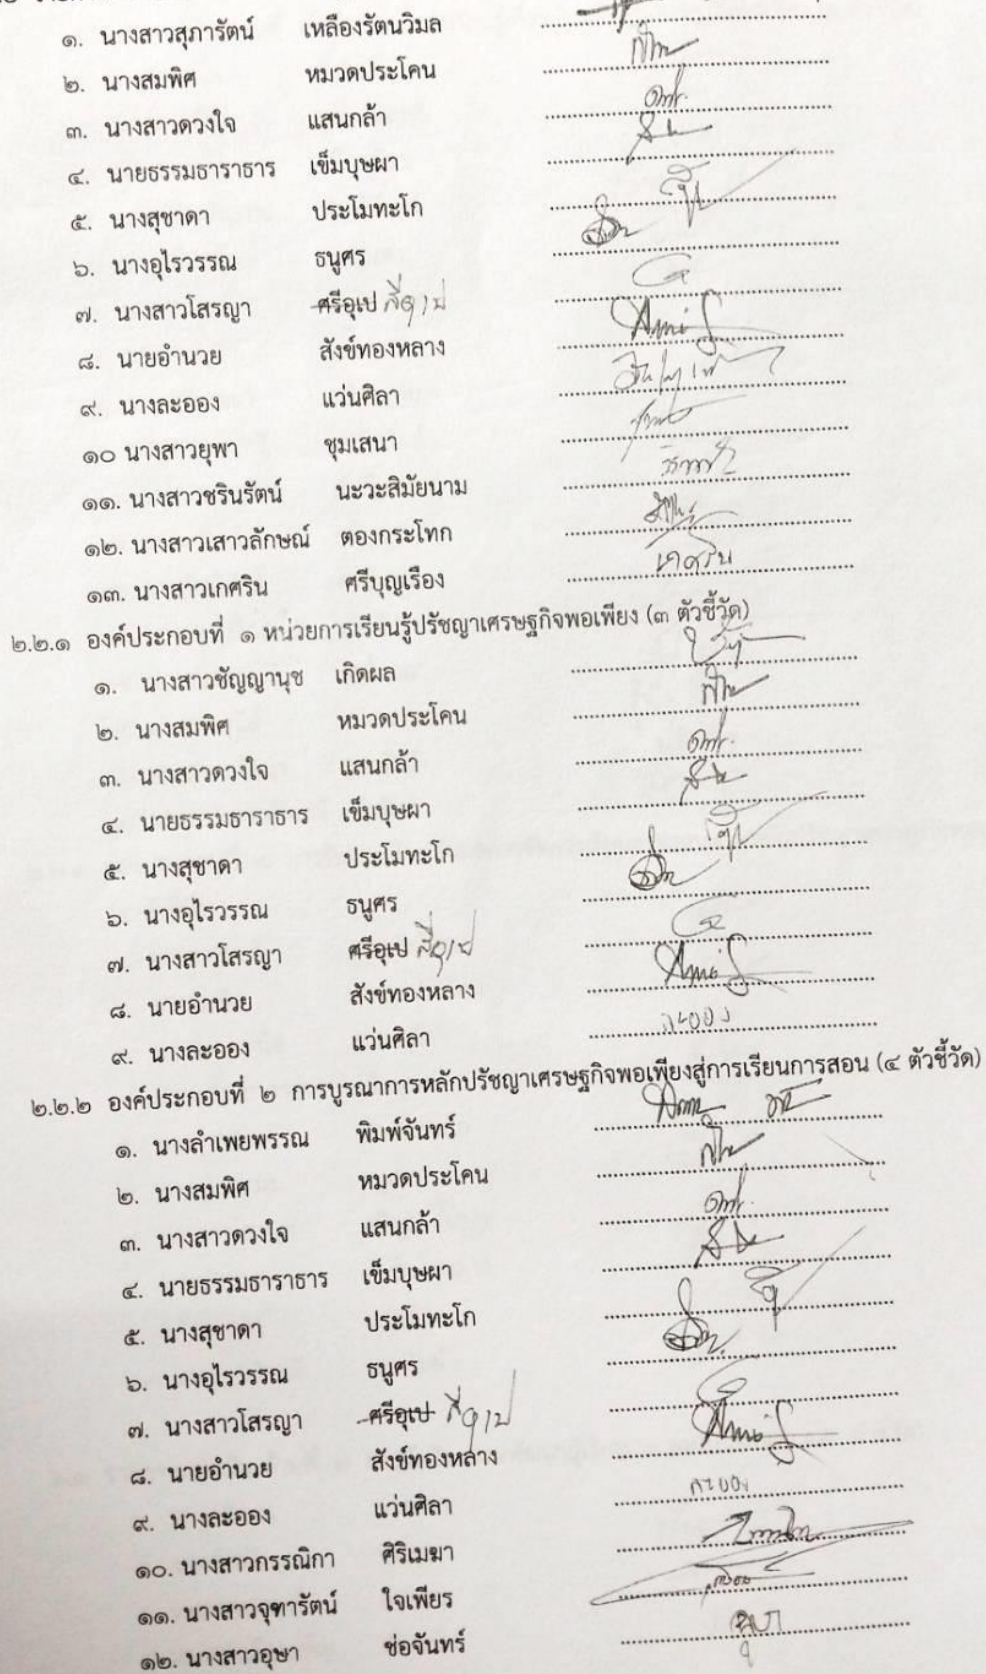 ๑. นางสาวสุภารัตน์ เหลืองรัตนวิมล
๒. นางสมพิศ หมวดประโคน
๓. นางสาวดวงใจ แสนกล้า
๔. นายธรรมธาราธาร เข็มบุษผา
๕. นางสุชาดา ประโมทะโก
๖. นางอุไรวรรณ ธนูศร
๗. นางสาวโสรญา ศรีอุเป สีอุเป
๘. นายอำนวย สังข์ทองหลาง
๙. นางละออง แว่นศิลา
๑๐ นางสาวยุพา ชุมเสนา
๑๑. นางสาวชรินรัตน์ นะวะสิมัยนาม
๑๒. นางสาวเสาวลักษณ์ ตองกระโทก
๑๓. นางสาวเกศริน ศรีบุญเรือง เกศริน
๒.๒.๑ องค์ประกอบที่ ๑ หน่วยการเรียนรู้ปรัชญาเศรษฐกิจพอเพียง (๓ ตัวชี้วัด)
๑. นางสาวชัญญานุช เกิดผล
๒. นางสมพิศ หมวดประโคน
๓. นางสาวดวงใจ แสนกล้า
๔. นายธรรมธาราธาร เข็มบุษผา
๕. นางสุชาดา ประโมทะโก
๖. นางอุไรวรรณ ธนูศร
๗. นางสาวโสรญา ศรีอุเป สีอุเป
๘. นายอำนวย สังข์ทองหลาง
๙. นางละออง แว่นศิลา ละออง
๒.๒.๒ องค์ประกอบที่ ๒ การบูรณาการหลักปรัชญาเศรษฐกิจพอเพียงสู่การเรียนการสอน (๔ ตัวชี้วัด)
๑. นางลำเพยพรรณ พิมพ์จันทร์
๒. นางสมพิศ หมวดประโคน
๓. นางสาวดวงใจ แสนกล้า
๔. นายธรรมธาราธาร เข็มบุษผา
๕. นางสุชาดา ประโมทะโก
๖. นางอุไรวรรณ ธนูศร
๗. นางสาวโสรญา ศรีอุเป สีอุเป
๘. นายอำนวย สังข์ทองหลาง
๙. นางละออง แว่นศิลา ละออง
๑๐. นางสาวกรรณิกา ศิริเมฆา
๑๑. นางสาวจุฑารัตน์ ใจเพียร
๑๒. นางสาวอุษา ช่อจันทร์